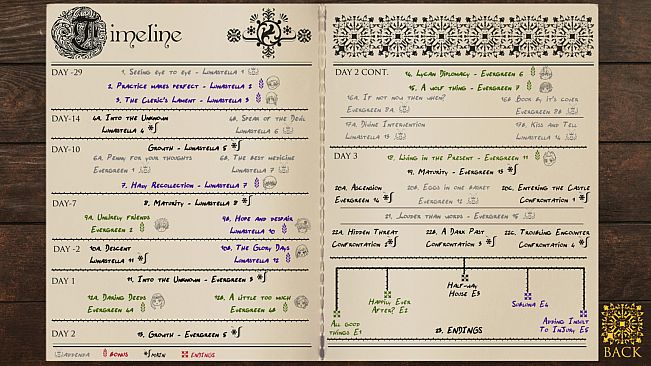 Timeline
DAY -29
1. Seeing eye to eye - Linastella 1
2. Practice makes perfect - Linastella 2
3. The Cleric's Lament - Linastella 3
DAY-14
4A. Into the Unknown
Linastella 4
4B. Speak of the Devil
Linastella 6
DAY-10
Growth - Linastella 5
6A. Penny for your thoughts
Evergreen 1
6B. The best medicine
Linastella 7
7. Hazy Recollection - Linastella 7
DAY-7
8. Maturity - Linastella 8
9A. Unlikely friends
Evergreen 2
9B. Hope and despair
Linastella 10
DAY -2
10A. Descent
Linastella 11
10B. The Glory Days
Linastella 12
DAY 1
11. Into the Unknown - Evergreen 3
12A. Daring Deeds
Evergreen 4A
12B. A little too much
Evergreen 4B
DAY 2
13. Growth - Evergreen 5
Addenda
Bonus
Main
Endings
DAY 2 CONT.
14. Lycan Diplomacy - Evergreen 6
15. A wolf thing - Evergreen 7
16A. If not now then when?
Evergreen 8A
16B. Book by it's cover
Evergreen 8B
17A. Divine Intervention
Linastella 13
17B. Kiss and Tell
Linastella 14
DAY 3
18. Living in the Present - Evergreen 11
19. Maturity - Evergreen 13
20A. Ascension
Evergreen 14
20B. Eggs in one basket
Evergreen 12
20C. Entering the Castle
Confrontation 1
21. Louder than words - Evergreen 15
22A. Hidden Threat
Confrontation 2
22B. A Dark Past
Confrontation 3
22C. Troubling Encounter
Confrontation 4
Half-way
House E3
Happily Ever
After? E2
Sublima E4
All good
things E1
23. ENDINGS
Adding Insult
To Injury E5
BACK